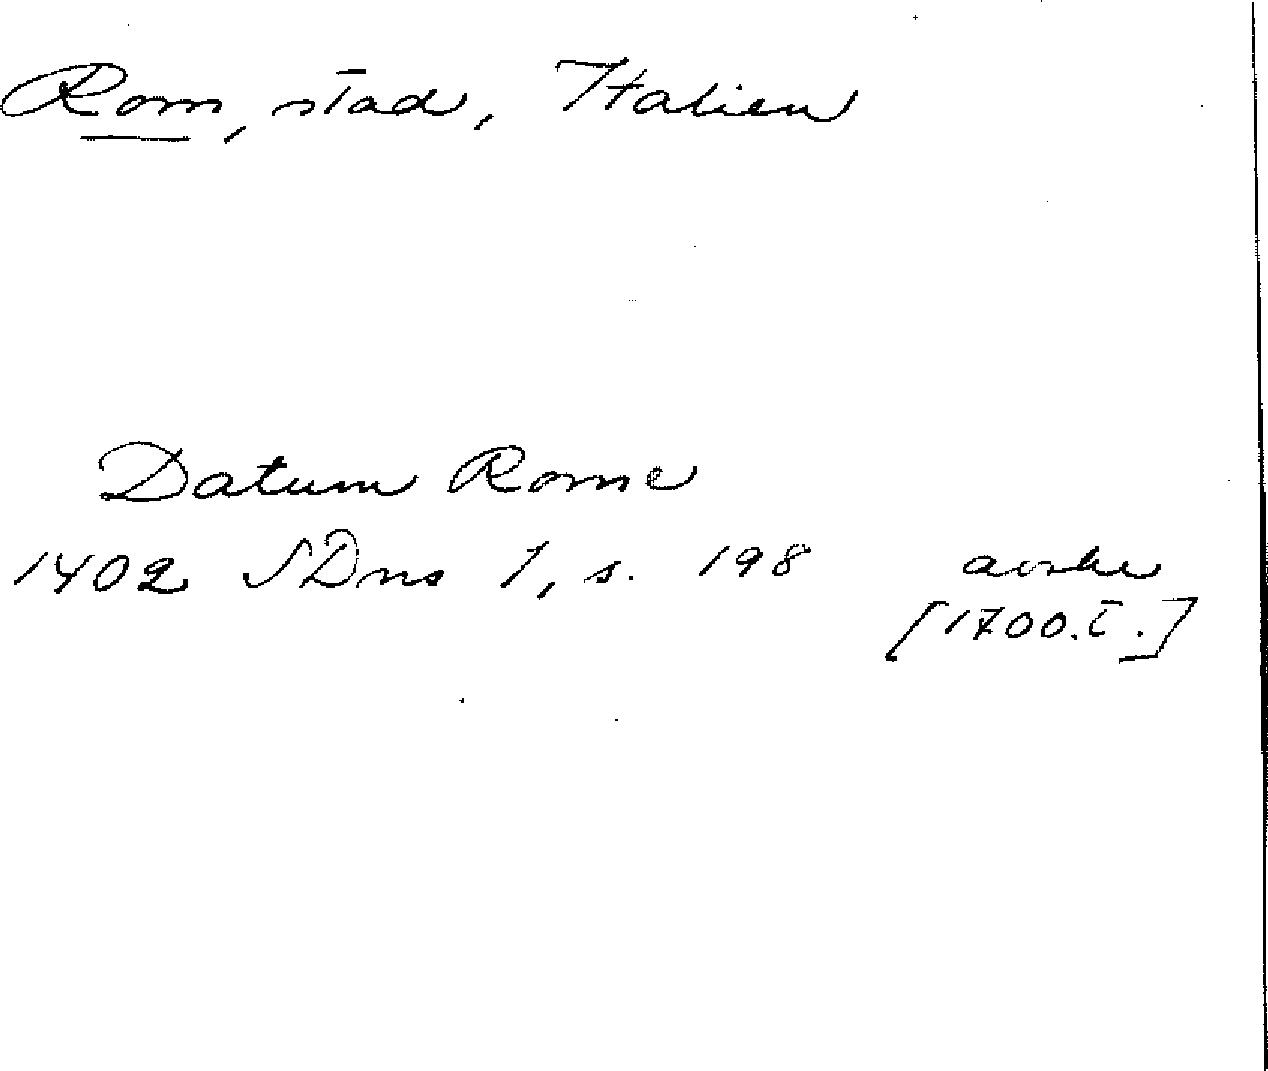 Rom, stad, Italien
Datum Rome
1402 SDns 1, s. 198 avskr
[1700.t.]